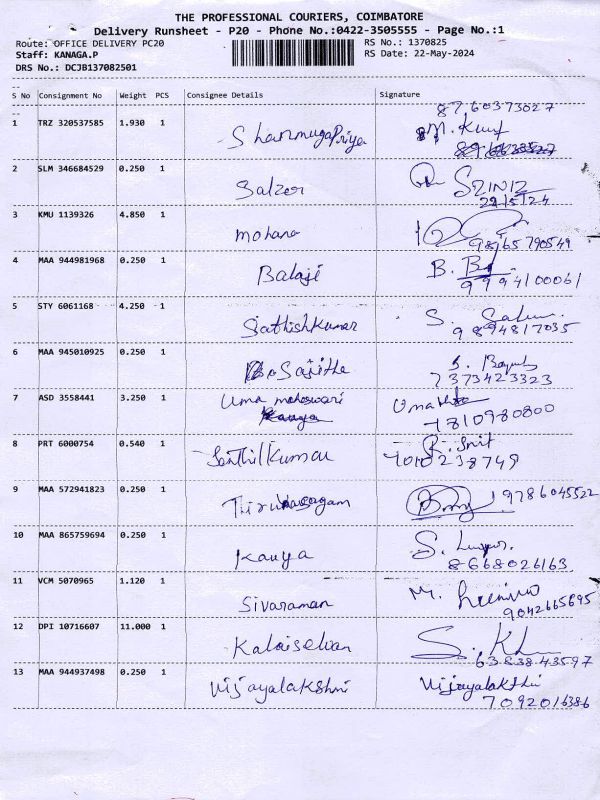 THE PROFESSIONAL COURIERS, COIMBATORE
Delivery Runsheet - P20 - Phone No.:0422-3505555 - Page No.:1
Route: OFFICE DELIVERY PC20 RS No.: 1370825
Staff: KANAGA.P RS Date: 22-May-2024
DRS No.: DCJB137082501
S No Consignment No Weight PCS Consignee Details Signature
8760373027
1 TRZ 320537585 1.930 1 ShanmugaPriya
2 SLM 346684529 0.250 1 Salzer
22/5/24
3 KMU 1139326 4.850 1 Mohana
9865790549
4 MAA 944981968 0.250 1 Balaji B.
9994100061
5 STY 6061168 4.250 1 Sathishkumar S.
9894817035
6 MAA 945010925 0.250 1 Sajitha S.
7373423323
7 ASD 3558441 3.250 1 Uma maheswari
7810980800
8 PRT 6000754 0.540 1 Senthilkumar
9 MAA 572941823 0.250 1 9786045522
10 MAA 865759694 0.250 1 Kavya S.
8668026163
11 VCM 5070965 1.120 1 Sivaraman M.
9042665695
12 DPI 10716607 11.000 1 Kalaiselvan
6383843597
13 MAA 944937498 0.250 1 Vijayalakshmi Vijayalakshmi
7092016386